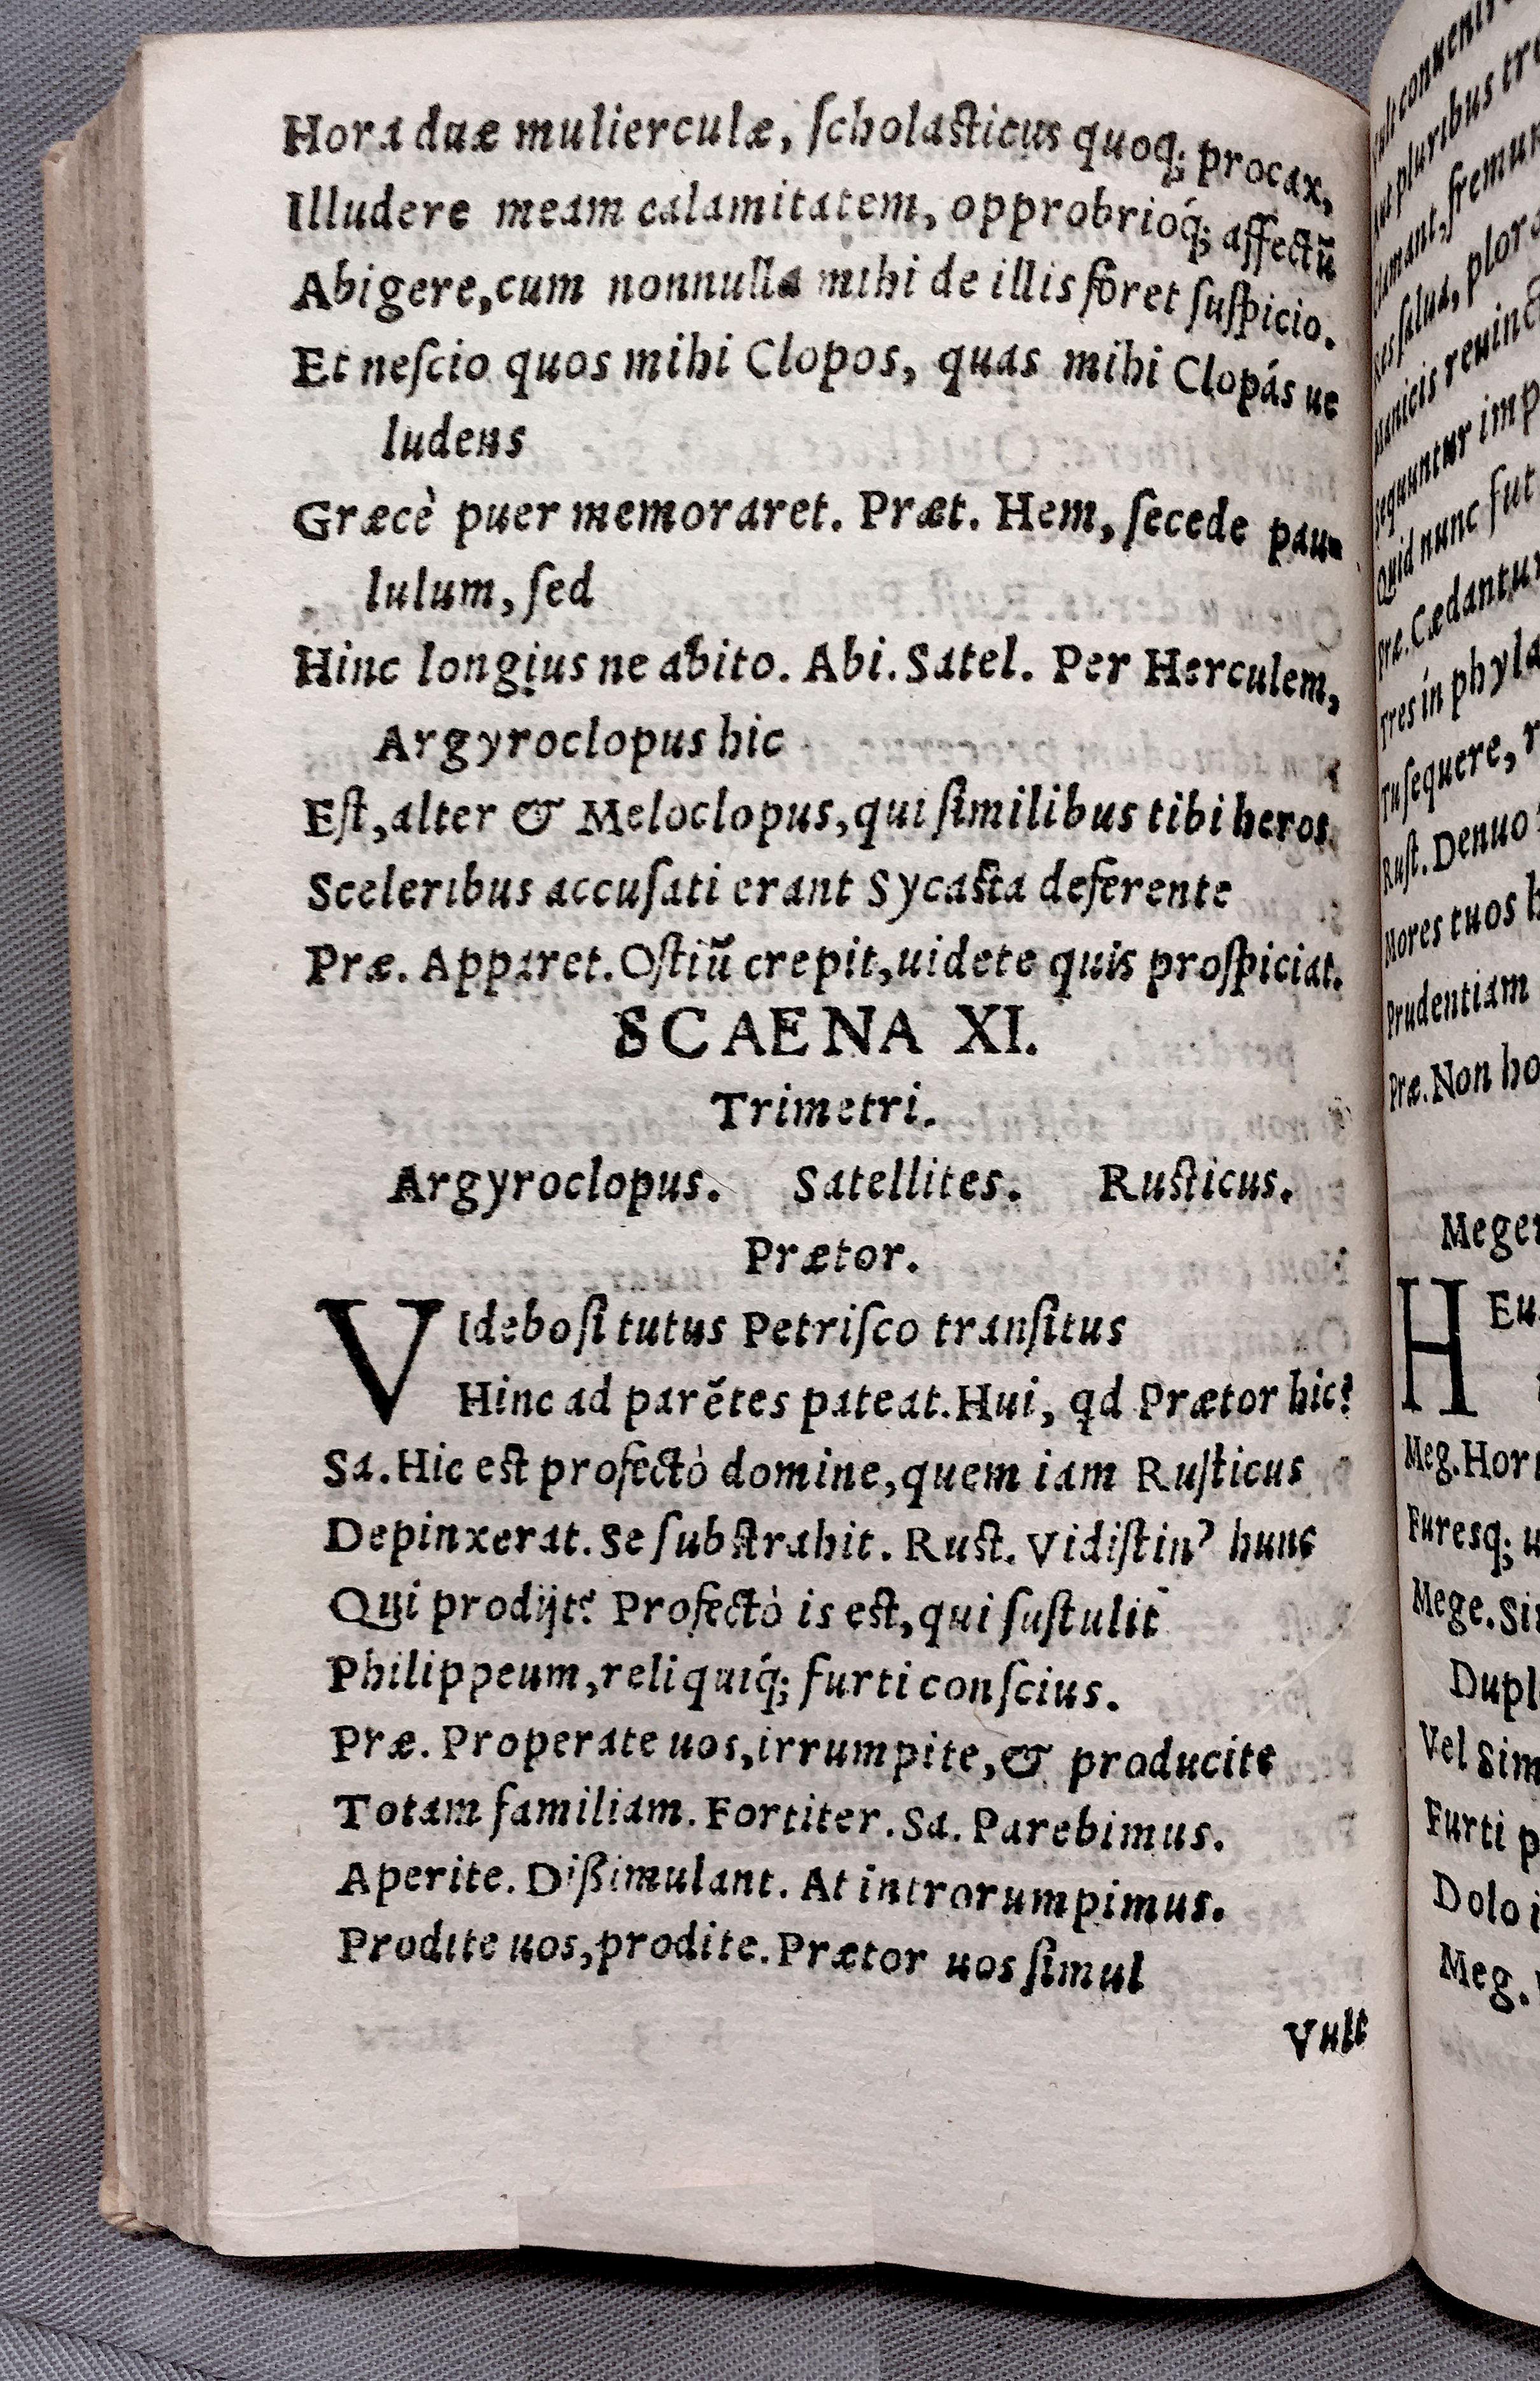 Hora duæ mulierculæ, ſcholaſticus quoq; procax,
Illudere meam calamitatem, opprobrioq́; affectũ
Abigere,cum nonnulla mihi de illis foret ſuſpicio.
Et neſcio quos mihi Clopos, quas mihi Clopás ue
ludens
Græcè puer memoraret. Præt. Hem, ſecede pau-
lulum, ſed
Hinc longius ne abito. Abi. Satel. Per Herculem,
Argyroclopus hic
Eſt,alter & Meloclopus,qui ſimilibus tibi heros
Sceleribus accuſati erant Sycaſta deferente
Præ. Apparet. Oſtiũ crepit,uidete quis proſpiciat.
SCAENA XI.
Trimetri.
Argyroclopus. Satellites. Ruſticus.
Prætor.
VIdebo ſi tutus Petriſco tranſitus
Hinc ad parẽtes pateat. Hui, qd Prætor hic?
Sa. Hic eſt profectò domine,quem iam Ruſticus
Depinxerat. Se ſubſtrahit. Ruſt. Vidiſtin? hunc
Qui prodijt? Profectò is eſt,qui ſuſtulit
Philippeum,reliquiq́; furti conſcius.
Præ. Properate uos,irrumpite,& producite
Totam familiam. Fortiter. Sa. Parebimus.
Aperite. Dißimulant. At introrumpimus.
Prodite uos,prodite. Prætor uos ſimul
Vult
pluribus
fremun
ſalua, plor
Manicis
ſequuntur imp
Quid nunc fut
Præ. Cædantur
Tres in phyla
Tu ſequere, r
Ruſt. Denuo
Mores tuos h
Prudentiam
Præ. Non ho
Meger
HEu
Meg. Hor
Fureſq; u
Mege. Si
Dupl
Vel Sim
Furti p
Dolo i
Meg.